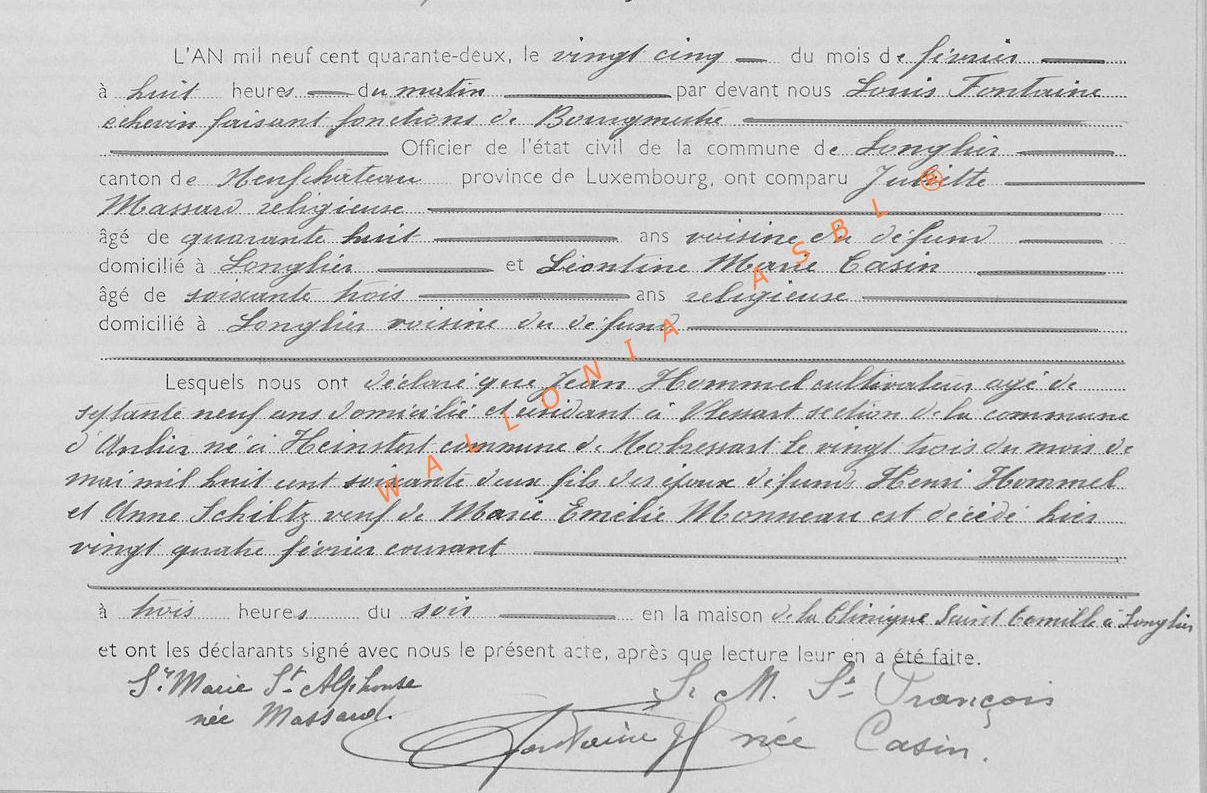 L'AN mil neuf cent quarante-deux, le vingt cinq du mois de février
à huit heures du matin par devant nous Louis Fontaine
echevin faisant fonctions de Bourgmestre
Officier de l'état civil de la commune de Longlier
canton de Neufchateau province de Luxembourg, ont comparu Juliette
Massard religieuse
âgé de quarante huit ans voisine du défunt
domicilié à Longlier et Léontine Marie Casin
âgé de soixante trois ans religieuse
domicilié à Longlier voisine du défunt
Lesquels nous ont déclaré que Jean Hommel cultivateur agé de
septante neuf ans domicilié et résidant à Vlessart section de la commune
d'Anlier né à Heinstert commune de Nobressart le vingt trois du mois de
mai mil huit cent soixante deux fils des époux défunts Henri Hommel
et Anne Schiltz veuf de Marie Emélie Monneau est décédé hier
vingt quatre février courant
à trois heures du soir en la maison de la Clinique Saint Camille à Longlier
et ont les déclarants signé avec nous le présent acte, après que lecture leur en a été faite.
Sr Marie St Alphonse
née Massard.
S. M. St François
Fontaine née Casin.
WALLONIA ASBL ©